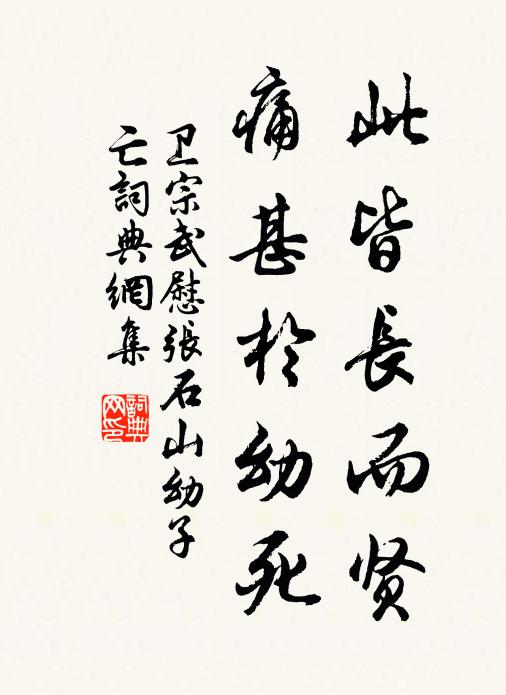 此皆長而贤
痛甚於幼死
卫宗武慰張石山幼子
亡詞典網集
詞典
网印